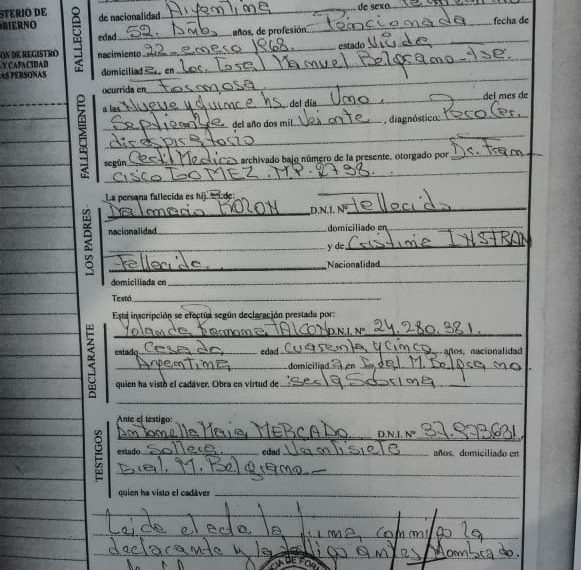 STERIO DE
BIERNO
ON DE REGISTRO
Y CAPACIDAD
AS PERSONAS
FALLECIDO
de nacionalidad Argentina de sexo
edad 52. años, de profesión Pencionada fecha de
nacimiento 22 enero 1968. estado Viuda
domiciliad a en Loc. Gral Manuel Belgrano
FALLECIMIENTO
ocurrida en Formosa
a las Nueve y quince hs del día Uno. del mes de
Septiembre del año dos mil Veinte, diagnóstico: Paro Car.
dio respiratorio
según Certi Medico archivado bajo número de la presente, otorgado por Dr. Fran
cisco GOMEZ. M.P. 2798.
LOS PADRES
La persona fallecida es hij de:
Dalmacio D.N.I. Nº fallecido
nacionalidad domiciliado en
y de Cristina INSFRAN
Fallecida Nacionalidad
domiciliada en
Testó
DECLARANTE
Esta inscripción se efectúa según declaración prestada por:
Yolanda Ramona FALCON D.N.I. Nº 24.280.381.
estado Casada edad Cuarenta y Cinco años, nacionalidad
Argentina domiciliad a en Gral. M. Belgrano
quien ha visto el cadáver. Obra en virtud de ser la Sobrina
TESTIGOS
Ante el testigo:
Antonella Maria MERCADO D.N.I. Nº 37.973631
estado Soltera edad Veintisiete años, domiciliado en
Gral. M. Belgrano.
quien ha visto el cadáver
Leida el acta la firma, conmigo la
declarante y la testigo antes Nombrado.